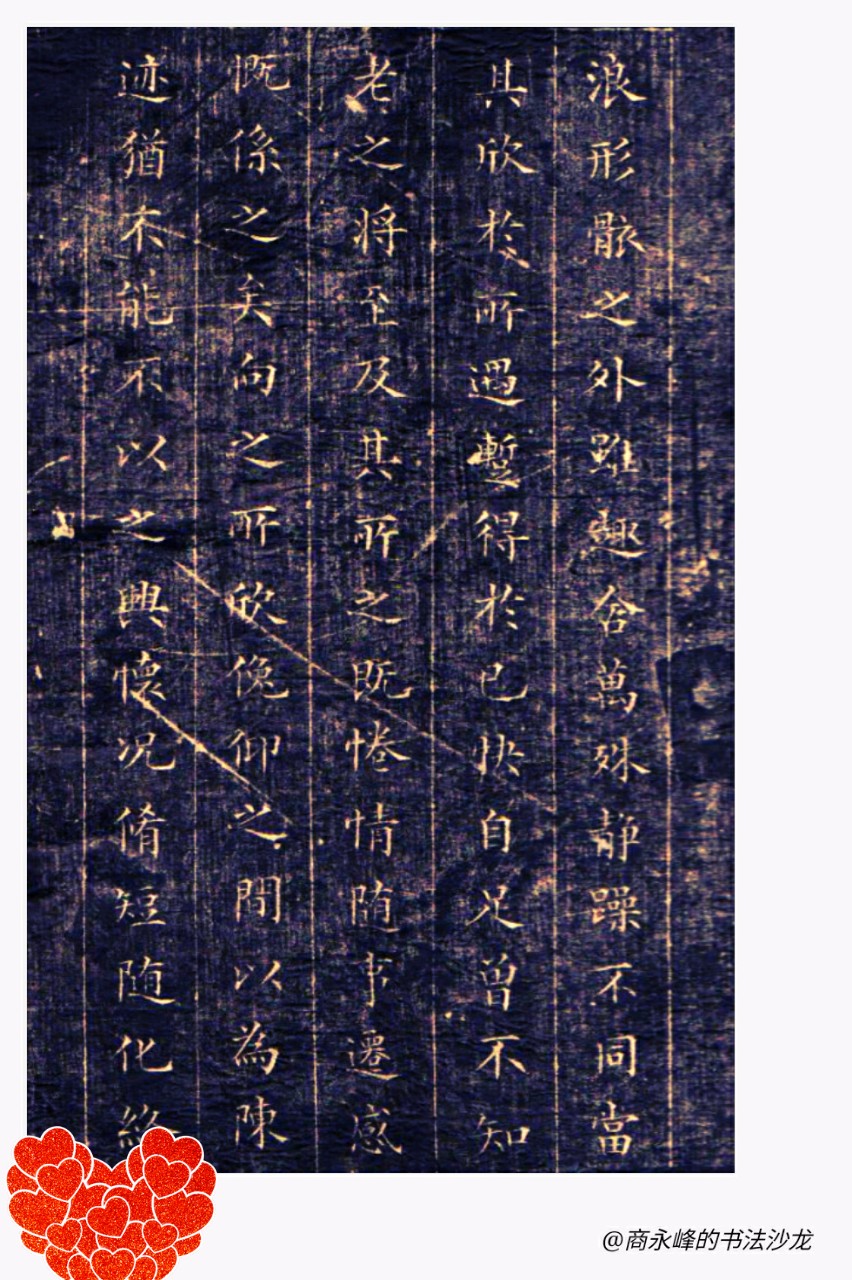 浪形骸之外雖趣舍萬殊静躁不同當
其欣於所遇蹔得於己快自足曾不知
老之将至及其所之既惓情随事遷感
慨係之矣向之所欣俛仰之間以為陳
迹猶不能不以之興懷况脩短随化終
@商永峰的书法沙龙